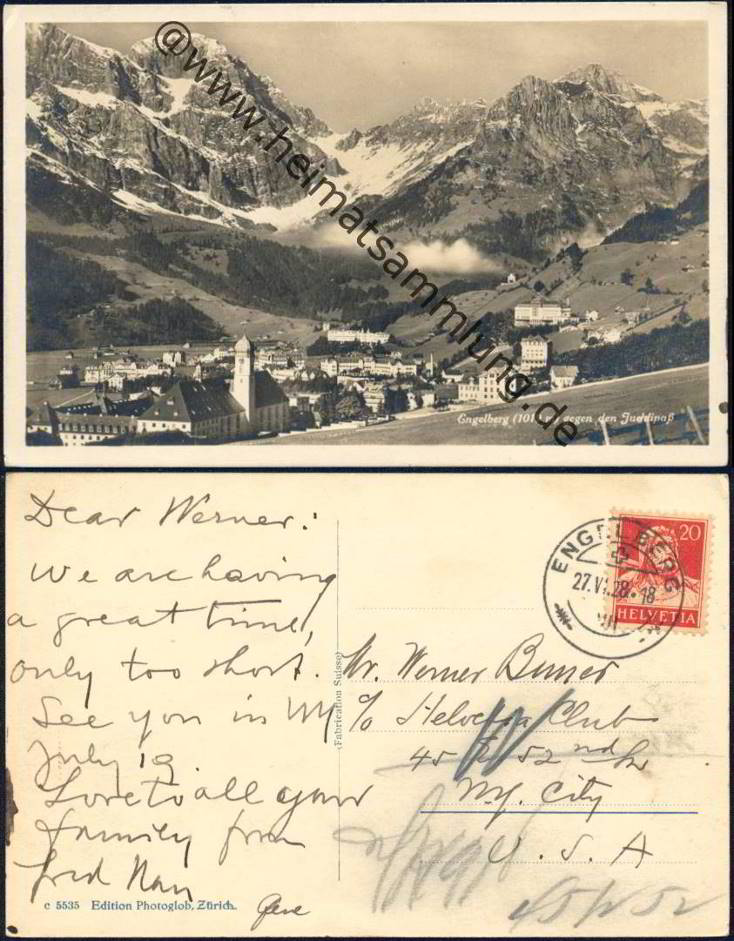 @www.heimatsammlung.de
Engelberg (101 gegen den Juchlipaß
Dear Werner:
We are having
a great time,
only too short.
See you in NY
July 19
Love to all your
family from
c 5535 Edition Photoglob, Zürich.
Gene
(Fabrication Suisse)
ENGELBERG
27.VI.28.-18
20
HELVETIA
Mr. Werner
c/o Helvetia Club
45 52nd
N.Y. City
U. S. A